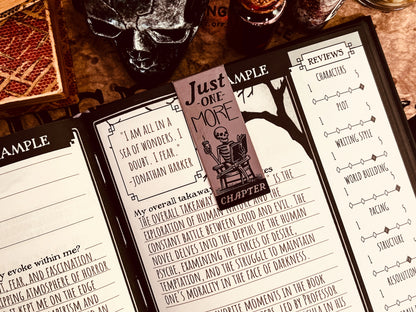 AMPLE
evoke within me?
T, FEAR, AND FASCINATION
PPING ATMOSPHERE OF HORROR
KEPT ME ON THE EDGE
"I AM ALL IN A
SEA OF WONDERS. I
DOUBT, I FEAR."
-JONATHAN HARKER
Just
-ONE-
MORE
CHAPTER
AMPLE
My overall takeaway
THE OVERALL TAKEAWAY IS THE
EXPLORATION OF HUMAN AND THE
CONSTANT BATTLE BETWEEN GOOD AND EVIL. THE
NOVEL DELVES INTO THE DEPTHS OF THE HUMAN
PSYCHE, EXAMINING THE FORCES OF DESIRE,
TEMPTATION, AND THE STRUGGLE TO MAINTAIN
ONE'S MORALITY IN THE FACE OF DARKNESS.
MOMENTS IN THE BOOK
LED BY PROFESSOR
REVIEWS
1 CHARACTERS 5
1 PLOT 5
1 WRITING STYLE 5
1 WORLD BUILDING 5
1 PACING 5
1 STRUCTURE 5
RESOLUTION